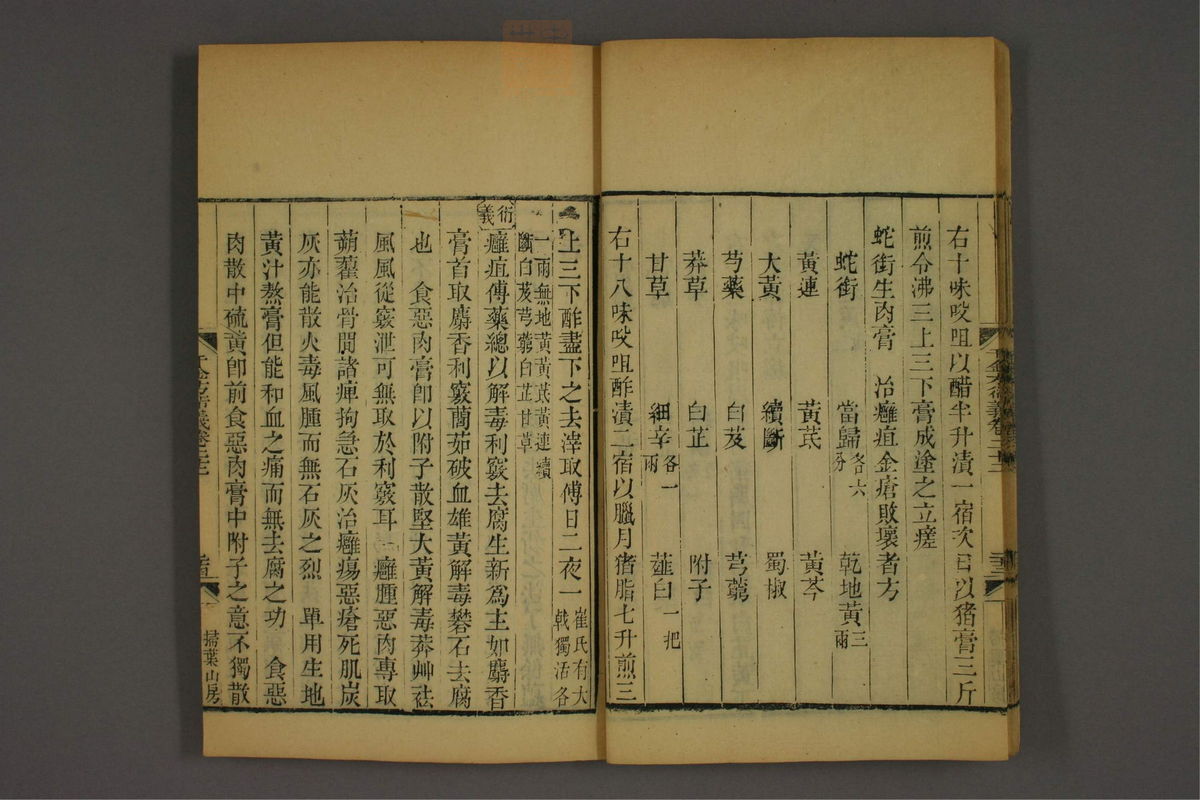 右十味㕮咀以醋半升漬一宿次日以猪膏三斤
煎令沸三上三下膏成塗之立瘥
蛇銜生肉膏 治癰疽金瘡敗壞者方
蛇銜 當歸各六分 乾地黃三兩
黃連 黃芪 黃芩
大黃 續斷 蜀椒
芍藥 白芨 芎藭
莽草 白芷 附子
甘草 細辛各一兩 薤白一把
右十八味㕮咀酢漬二宿以臘月猪脂七升煎三
上三下酢盡下之去滓取傅日二夜一崔氏有大戟獨活各
一兩無地黃黃芪黃連續斷白芨芎藭白芷甘草
衍義
癰疽傅藥總以解毒利竅去腐生新爲主如麝香
膏首取麝香利竅䕡茹破血雄黃解毒礬石去腐
也 食惡肉膏卽以附子散堅大黃解毒莽艸祛
風風從竅泄可無取於利竅耳 癰腫惡肉專取
蒴藋治骨間諸痺拘急石灰治癰瘍惡瘡死肌炭
灰亦能散火毒風腫而無石灰之烈 單用生地
黃汁熬膏但能和血之痛而無去腐之功 食惡
肉散中硫黃卽前食惡肉膏中附子之意不獨散
千金方衍義卷二十二
掃葉山房